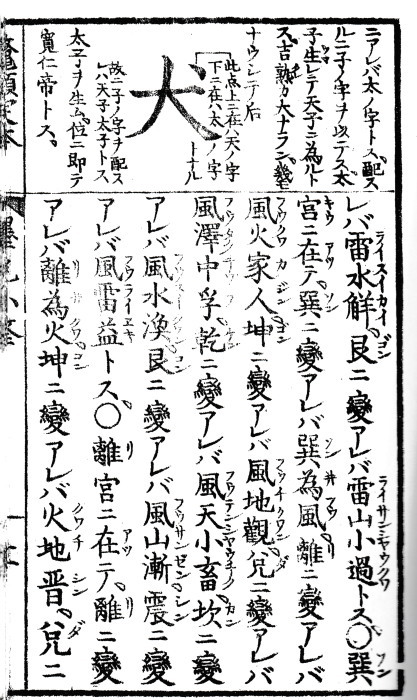 ニアレバ太ノ字トス。配ス
ルニ子ノ字ヲ以テス。太
子生レテ天子ニ為ルト
ス。吉孰カ大ナラン。幾モ
ナウシテ后
犬
此点上ニ在ハ天ノ字
下ニ在ハ太ノ字
トナル
故ニ子ノ字ヲ配ス
レハ天子太子トス
太子ヲ生ム。位ニ即テ
寛仁帝トス。
レバ雷水解。艮ニ變アレバ雷山小過トス。○巽
宮ニ在テ。巽ニ變アレバ巽為風。離ニ變アレバ
風火家人。坤ニ變アレバ風地觀。兌ニ變アレバ
風澤中孚。乾ニ變アレバ風天小畜。坎ニ變
アレバ風水渙。艮ニ變アレバ風山漸。震ニ變
アレバ風雷益トス。○離宮ニ在テ。離ニ變
アレバ離為火。坤ニ變アレバ火地晋。兌ニ